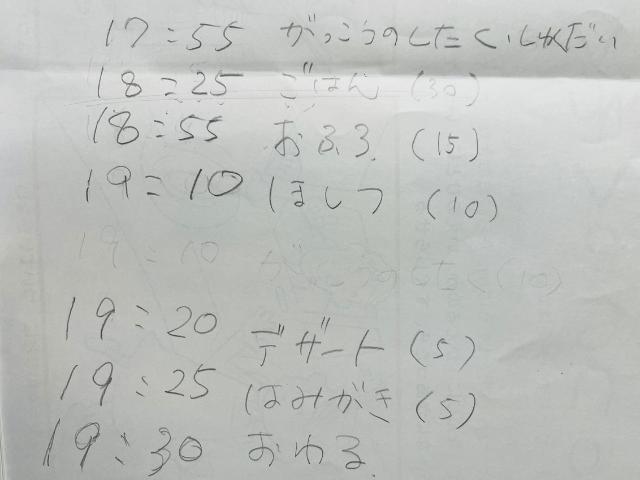 17:55 がっこうのしたく、しゅくだい
18:25 ごはん (30)
18:55 おふろ (15)
19:10 ほしつ (10)
19:10 がっこうのしたく (10)
19:20 デザート (5)
19:25 はみがき (5)
19:30 おわる